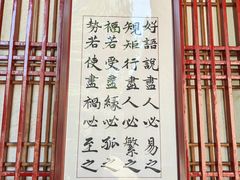 好語說盡人必易之
規矩行盡人必繁之
福若受盡緣必孤之
勢若使盡禍必至之